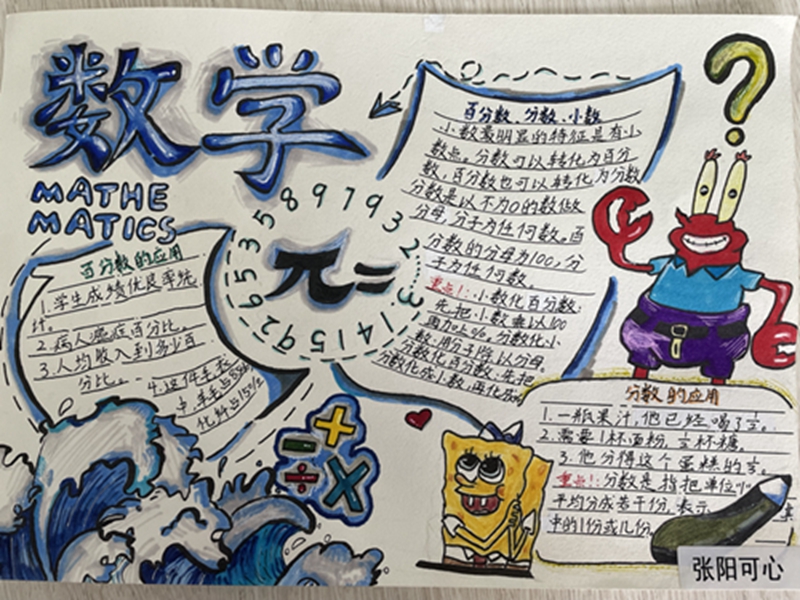 数学
MATHE
MATICS
百分数的应用
1.学生成绩优良率统
计。
2.病人患病百分比。
3.人均收入到多少百
分比。
π=
3.1415926535897932…
百分数、分数、小数
小数最明显的特征是有小
数点。分数可以转化为百分
数,百分数也可以转化为分数
分数是以不为0的数做
分母,分子为任何数。百
分数的分母为100,分
子为任何数。
重点!:小数化百分数:
先把小数乘以100
再加上%。分数化小
数:用分子除以分母。
分数化百分数:先把
分数化成小数,再化成
?
+
-
÷
×
分数的应用
1.一瓶果汁,他已经喝了
2.需要1杯面粉,
杯糖。
3.他分得这个蛋糕的
重点!:分数是指把单位"1"
平均分成若干份,表示
中的1份或几份。
张阳可心